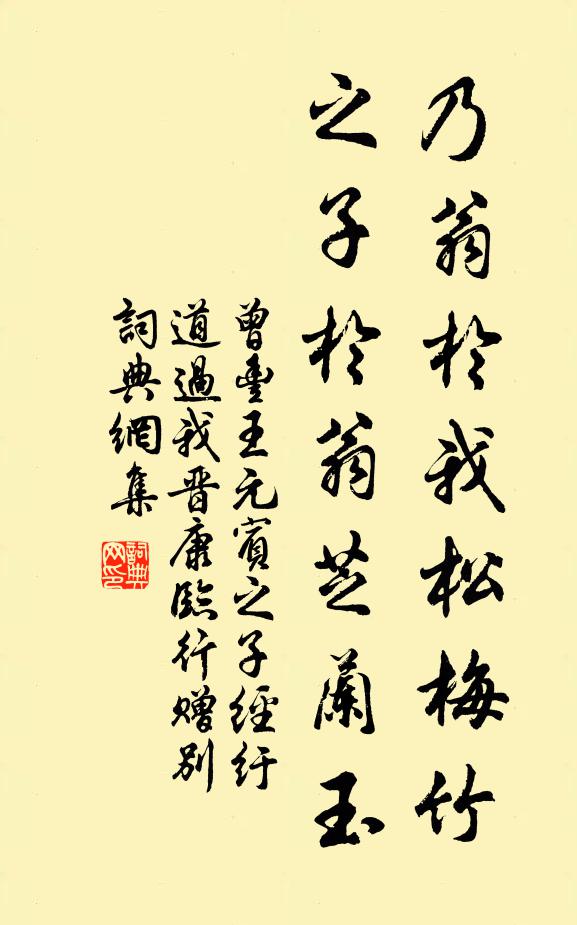 乃翁於我松梅竹
之子於翁芝蘭玉
曾豐王元賓之子經紆
道過我晉康臨行贈別
詞典網集
詞典網印